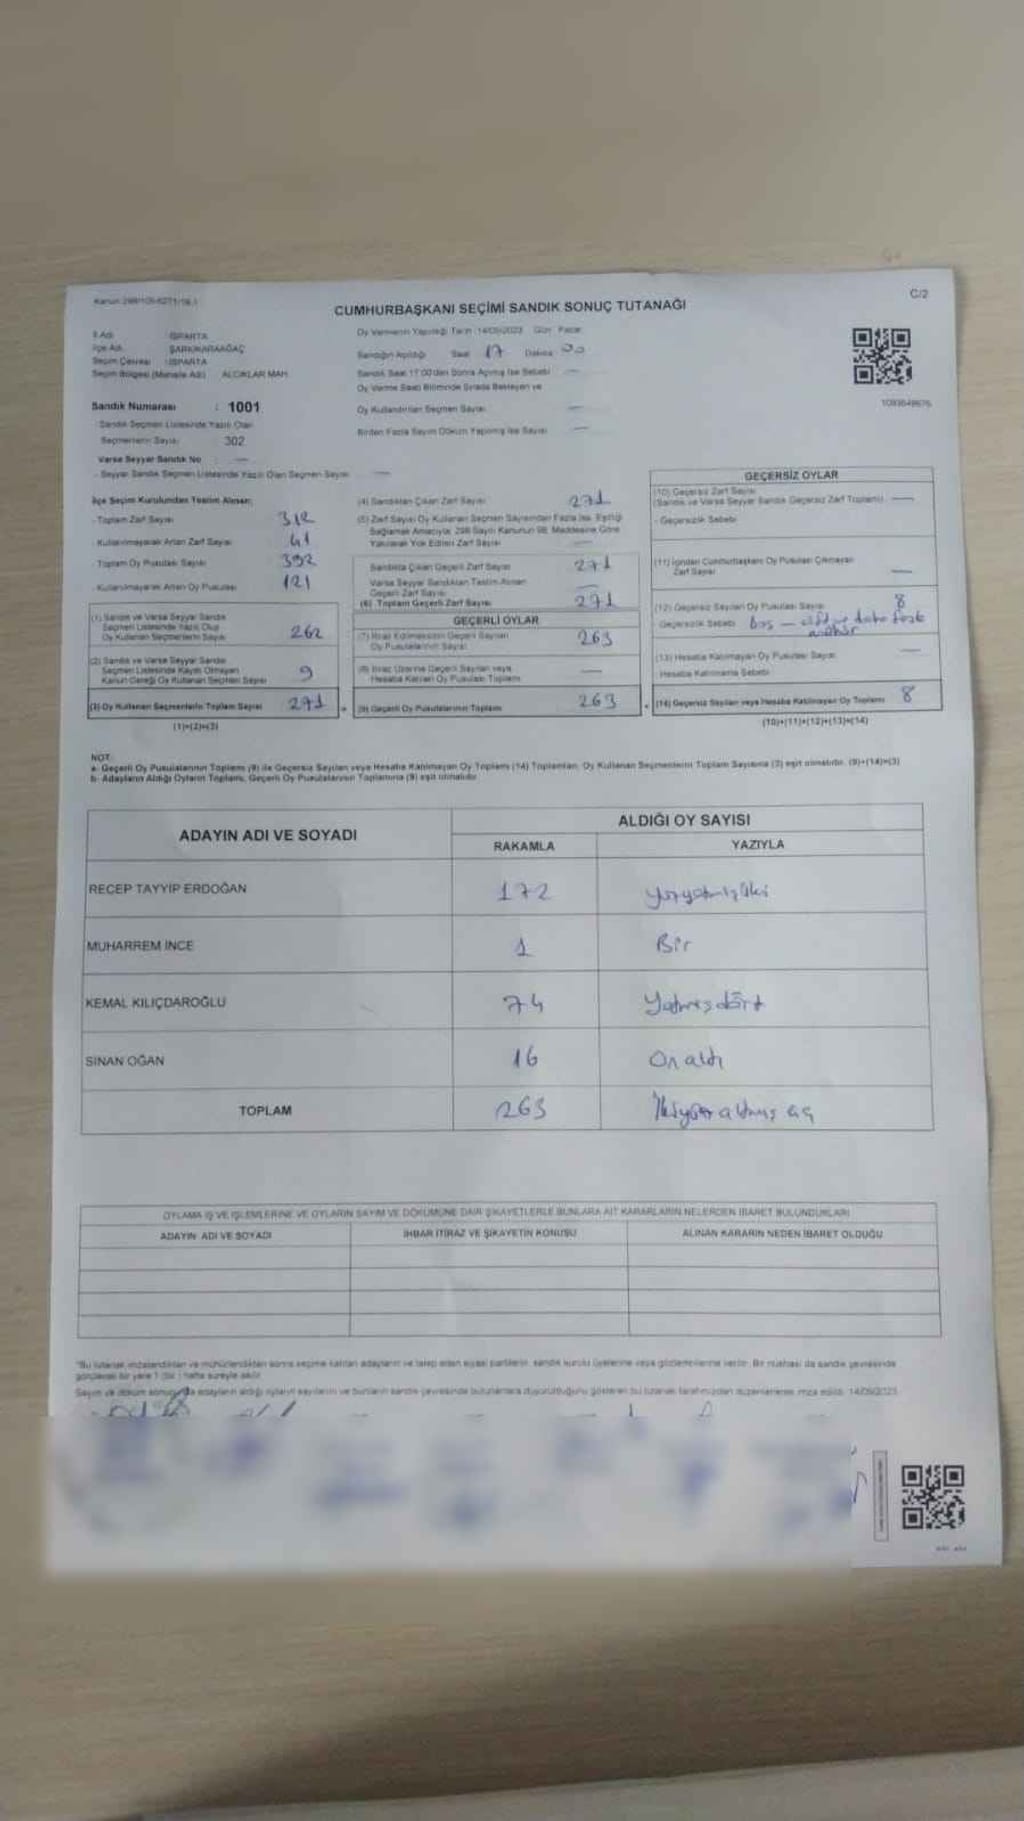 C/2
CUMHURBAŞKANI SEÇİMİ SANDIK SONUÇ TUTANAĞI
İl Adı : ISPARTA
İlçe Adı : ŞARKİKARAAĞAÇ
Seçim Çevresi : ISPARTA
Seçim Bölgesi (Mahalle Adı) ALCIKLAR MAH.
Sandık Numarası : 1001
Sandık Seçmen Listesinde Yazılı Olan
Seçmenlerin Sayısı 302
Varsa Seyyar Sandık No : —
- Seyyar Sandık Seçmen Listesinde Yazılı Olan Seçmen Sayısı —
Oy Vermenin Yapıldığı Tarih :14/05/2023 Gün :Pazar
Sandığın Açıldığı Saat 17 Dakika 00
Sandık Saat 17:00'den Sonra Açılmış İse Sebebi —
Oy Verme Saati Bitiminde Sırada Bekleyen ve
Oy Kullandırılan Seçmen Sayısı —
Birden Fazla Sayım Döküm Yapılmış İse Sayısı —
İlçe Seçim Kurulundan Teslim Alınan:
- Toplam Zarf Sayısı 312
- Kullanılmayarak Artan Zarf Sayısı 41
- Toplam Oy Pusulası Sayısı 392
- Kullanılmayarak Artan Oy Pusulası 121
(1) Sandık ve Varsa Seyyar Sandık
Seçmen Listesinde Yazılı Olup
Oy Kullanan Seçmenlerin Sayısı 262
(2) Sandık ve Varsa Seyyar Sandık
Seçmen Listesinde Kayıtlı Olmayan
Kanun Gereği Oy Kullanan Seçmen Sayısı 9
(3) Oy Kullanan Seçmenlerin Toplam Sayısı 271
(1)+(2)=(3)
(4) Sandıktan Çıkan Zarf Sayısı 271
(5) Zarf Sayısı Oy Kullanan Seçmen Sayısından Fazla İse, Eşitliği
Sağlamak Amacıyla, 298 Sayılı Kanunun 98. Maddesine Göre
Yakılarak Yok Edilen Zarf Sayısı —
Sandıkta Çıkan Geçerli Zarf Sayısı 271
Varsa Seyyar Sandıktan Teslim Alınan
Geçerli Zarf Sayısı —
(6) Toplam Geçerli Zarf Sayısı 271
GEÇERLİ OYLAR
(7) İtiraz Edilmeksizin Geçerli Sayılan
Oy Pusulalarının Sayısı 263
(8) İtiraz Üzerine Geçerli Sayılan veya
Hesaba Katılan Oy Pusulası Toplamı —
(9) Geçerli Oy Pusulalarının Toplamı 263
GEÇERSİZ OYLAR
(10) Geçersiz Zarf Sayısı
(Sandık ve Varsa Seyyar Sandık Geçersiz Zarf Toplamı) —
- Geçersizlik Sebebi
(11) İçinden Cumhurbaşkanı Oy Pusulası Çıkmayan
Zarf Sayısı —
(12) Geçersiz Sayılan Oy Pusulası Sayısı 8
Geçersizlik Sebebi boş — ve daha fazla
mühür
(13) Hesaba Katılmayan Oy Pusulası Sayısı —
Hesaba Katılmama Sebebi
(14) Geçersiz Sayılan veya Hesaba Katılmayan Oy Toplamı 8
(10)+(11)+(12)+(13)=(14)
NOT:
a- Geçerli Oy Pusulalarının Toplamı (9) ile Geçersiz Sayılan veya Hesaba Katılmayan Oy Toplamı (14) Toplamları, Oy Kullanan Seçmenlerin Toplam Sayısına (3) eşit olmalıdır. (9)+(14)=(3)
b- Adayların Aldığı Oyların Toplamı, Geçerli Oy Pusulalarının Toplamına (9) eşit olmalıdır.
ADAYIN ADI VE SOYADI
ALDIĞI OY SAYISI
RAKAMLA YAZIYLA
RECEP TAYYİP ERDOĞAN 172 Yüzyetmişiki
MUHARREM İNCE 1 Bir
KEMAL KILIÇDAROĞLU 74 Yetmişdört
SİNAN OĞAN 16 Onaltı
TOPLAM 263 İkiyüz altmış üç
OYLAMA İŞ VE İŞLEMLERİNE VE OYLARIN SAYIM VE DÖKÜMÜNE DAİR ŞİKAYETLERLE BUNLARA AİT KARARLARIN NELERDEN İBARET BULUNDUKLARI
ADAYIN ADI VE SOYADI
İHBAR İTİRAZ VE ŞİKAYETİN KONUSU
ALINAN KARARIN NEDEN İBARET OLDUĞU
*Bu tutanak imzalandıktan ve mühürlendikten sonra seçime katılan adayların ve talep eden siyasi partilerin, sandık kurulu üyelerine veya gözlemcilerine verilir. Bir nüshası da sandık çevresinde
görülecek bir yere 1 (bir) hafta süreyle asılır.
Sayım ve döküm sonucunda adayların aldığı oyların sayılarını ve bunların sandık çevresinde bulunanlara duyurulduğunu gösteren bu tutanak tarafımızdan düzenlenerek imza edildi. 14/05/2023